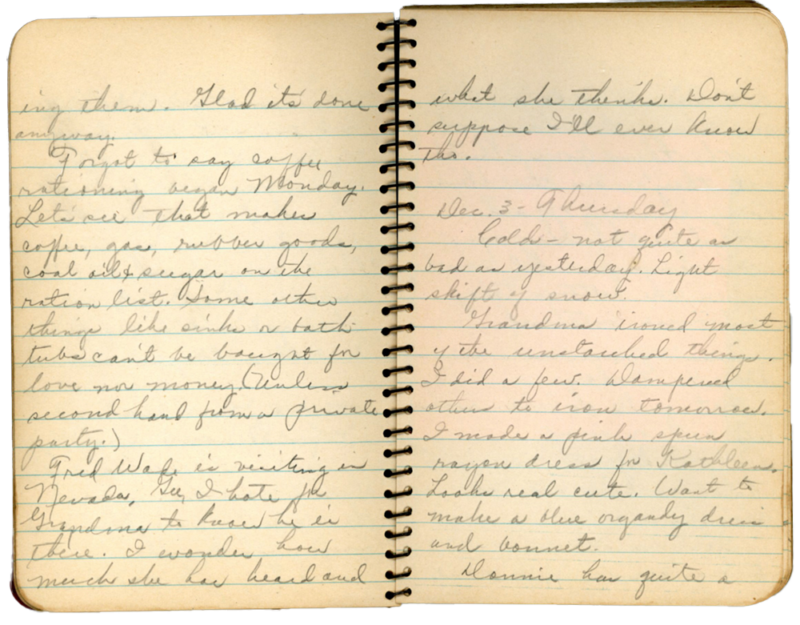 ing them. Glad it's done
anyway.
Forgot to say coffee
rationing began Monday.
Let's see that makes
coffee, gas, rubber goods,
coal oil & sugar on the
ration list. Some other
things like sinks or bath
tubs can't be bought for
love nor money. (Unless
second hand from a private
party.)
Fred Wade is visiting in
Nevada. Gee, I hate for
Grandma to know he is
there. I wonder how
much she has heard and
what she thinks. Don't
suppose I'll ever know
tho.
Dec. 3 - Thursday
Cold - not quite as
bad as yesterday. Light
skift of snow.
Grandma ironed most
of the unstarched things.
I did a few. Dampened
others to iron tomorrow.
I made a pink spun
rayon dress for Kathleen.
Looks real cute. Want to
make a blue organdy dress
and bonnet.
Donnie has quite a